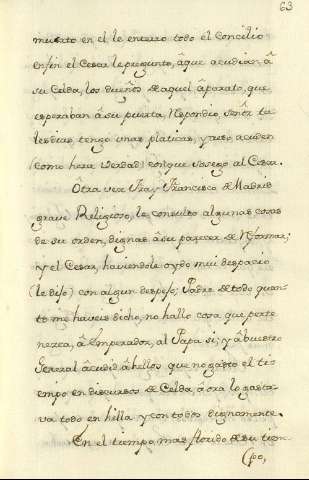 63
muerto en el le enterro todo el Concilio
en fin el Cesar le pregunto, âque acudian, â
su Celda, los dueños de aquel âparato, que
esperaban â su puerta, Respondio, señor ta
les dias, tengo unas platicas, y a eso acuden
(como hera verdad) con que sosego al Cesar.
Otra vez Fray Francisco de Madrid
grave Religioso, le consulto algunas cosas
de su orden, dignas â su parecer de Reformar;
y el Cesar, haviendole oydo mui despacio
(le dijo) con algun despejo; Padre de todo quan
to me haveis dicho, no hallo cosa que perte
nezca, â Emperador, al Papa si; y â buestro
General âcudid â hellos que no gasto el tie
mpo en discursos de Celda, âora lo gasta
va todo en hella y con todos dignamente.
En el tiempo mas florido de su tiem
(po,